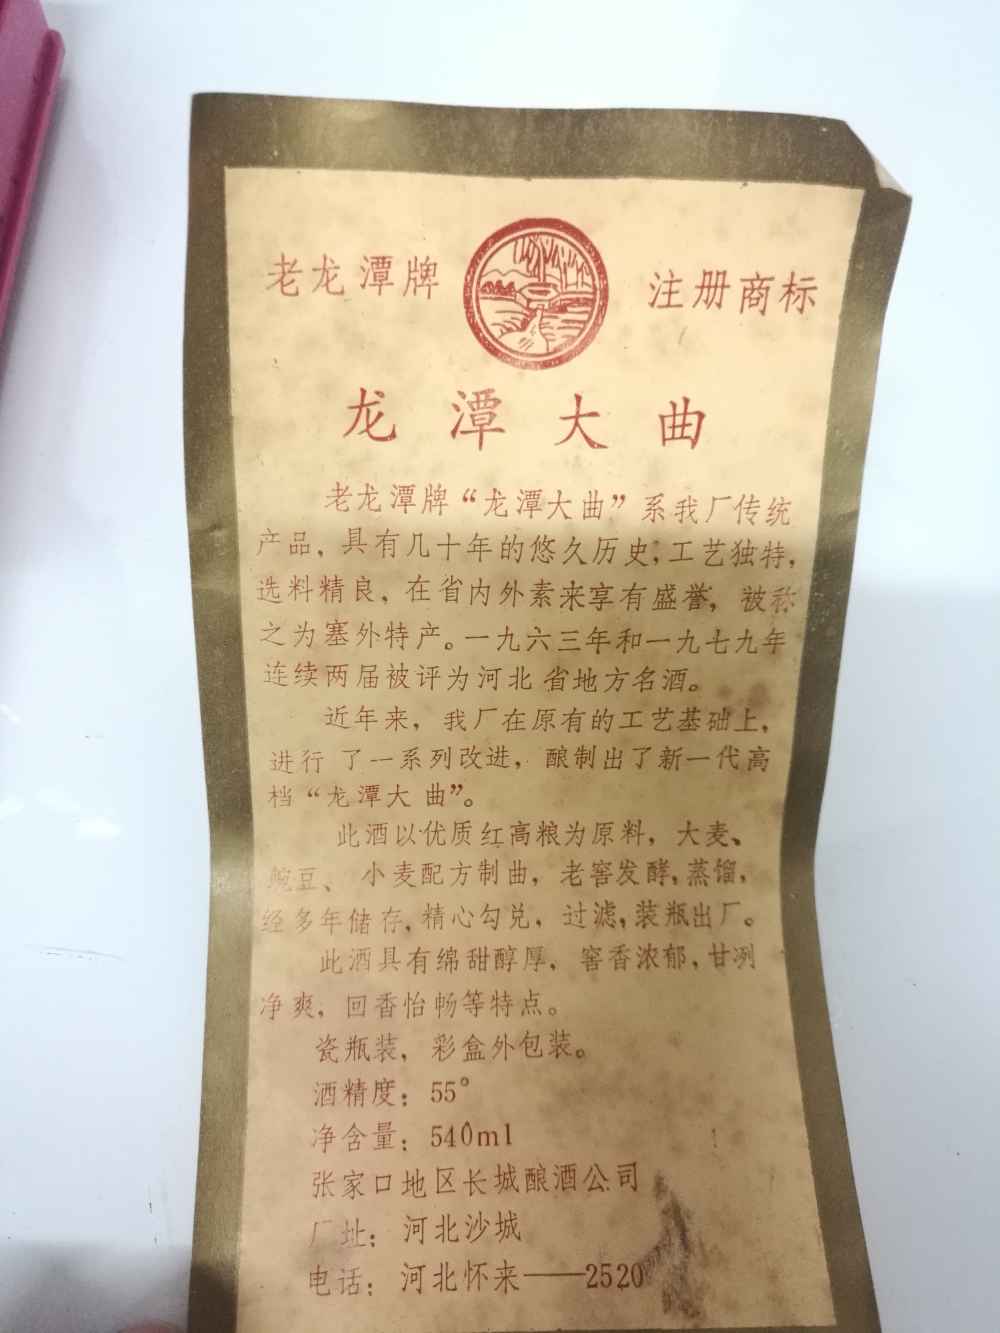 老龙潭牌 注册商标
龙潭大曲
老龙潭牌“龙潭大曲”系我厂传统
产品，具有几十年的悠久历史，工艺独特，
选料精良，在省内外素来享有盛誉，被称
之为塞外特产。一九六三年和一九七九年
连续两届被评为河北省地方名酒。
近年来，我厂在原有的工艺基础上，
进行了一系列改进，酿制出了新一代高
档“龙潭大曲”。
此酒以优质红高粮为原料，大麦、
豌豆、小麦配方制曲，老窖发酵，蒸馏，
经多年储存，精心勾兑，过滤，装瓶出厂。
此酒具有绵甜醇厚，窖香浓郁，甘冽
净爽，回香怡畅等特点。
瓷瓶装，彩盒外包装。
酒精度：55°
净含量：540ml
张家口地区长城酿酒公司
厂址：河北沙城
电话：河北怀来——2520